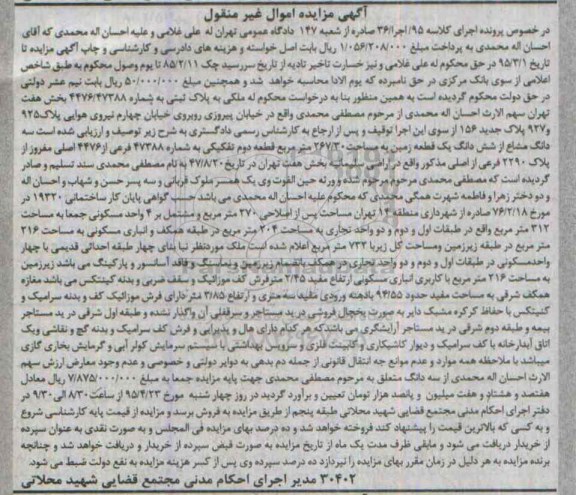 آگهی مزایده اموال غیر منقول
در خصوص پرونده اجرای کلاسه ۹۵/اجرا/۳۶ صادره از شعبه ۱۴۷ دادگاه عمومی تهران له علی غلامی و علیه احسان اله محمدی که آقای
احسان اله محمدی به پرداخت مبلغ ۱/۰۵۶/۲۰۸/۰۰۰ ریال بابت اصل خواسته و هزینه های دادرسی و کارشناسی و چاپ آگهی مزایده تا
تاریخ ۹۵/۳/۱ در حق محکوم له علی غلامی و نیز خسارت تاخیر تادیه از تاریخ سررسید چک ۸۵/۲/۱۱ تا یوم وصول محکوم به طبق شاخص
اعلامی از سوی بانک مرکزی در حق نامبرده که یوم الادا محاسبه خواهد شد و همچنین مبلغ ۵۰/۰۰۰/۰۰۰ ریال بابت نیم عشر دولتی
در حق دولت محکوم گردیده است به همین منظور بنا به درخواست محکوم له ملکی به پلاک ثبتی به شماره ۴۴۷۶/۴۷۳۸۸ بخش هفت
تهران سهم الارث احسان اله محمدی از مرحوم مصطفی محمدی واقع در خیابان پیروزی روبروی خیابان چهارم نیروی هوایی پلاک ۹۲۵
و ۹۲۷ پلاک جدید ۱۵۶ از سوی این اجرا توقیف و پس از ارجاع به کارشناس رسمی دادگستری به شرح زیر توصیف و ارزیابی شده است سه
دانگ مشاع از شش دانگ یک قطعه زمین به مساحت ۲۶۷/۳۰ متر مربع قطعه دوم تفکیکی به شماره ۴۷۳۸۸ فرعی از ۴۴۷۶ اصلی مفروز از
پلاک ۲۲۹۰ فرعی از اصلی مذکور واقع در اراضی سلیمانیه بخش هفت تهران در تاریخ ۴۷/۸/۲۰ به نام مصطفی محمدی سند تسلیم و صادر
گردیده است که مصطفی محمدی مرحوم مرحوم شده و ورثه حین الفوت وی یک همسر ملوک قربانی و سه پسر حسن و شهاب و احسان اله
و دو دختر زهرا و فاطمه شهرت همگی محمدی که محکوم علیه احسان اله محمدی می باشد حسب گواهی پایان کار ساختمانی ۱۹۳۲۰ در
مورخ ۷۶/۲/۱۸ صادره از شهرداری منطقه ۱۴ تهران مساحت پس از اصلاحی ۲۷۰ متر مربع و مشتمل بر ۴ واحد مسکونی جمعا به مساحت
۳۱۲ متر مربع واقع در طبقات اول و دوم و دو واحد تجاری به مساحت ۲۰۴ متر مربع در طبقه همکف و انباری مسکونی به مساحت ۲۱۶
متر مربع در طبقه زیرزمین ومساحت کل زیربا ۷۳۲ متر مربع اعلام شده است ملک موردنظر بنا بنای چهار طبقه احداثی قدیمی با چهار
واحدمسکونی در طبقات اول و دوم و دو واحد تجاری در همکف باانضمام زیرزمین و نماسنگ و فاقد آسانسور و پارکینگ می باشد زیرزمین
به مساحت ۲۱۶ متر مربع با کاربری انباری مسکونی ارتفاع مفید ۲/۴۵ مترفرش کف موزائیک و سقف ضربی و بدنه کنیتکس می باشد مغازه
همکف شرقی به مساحت مفید حدود ۹۴/۵۵ بادهنه ورودی مفید سه متری و ارتفاع ۳/۸۵ متر دارای فرش موزائیک کف و بدنه سرامیک و
کنیتکس با حفاظ کرکره مشبک دایر به صورت یخچال فروشی در ید مستاجر و سرقفلی آن واگذار نشده و طبقه اول شرقی در ید مستاجر
بیمه و طبقه دوم شرقی در ید مستاجر آرایشگری می باشد که هر کدام دارای هال و پذیرایی و فرش کف سرامیک و بدنه گچ و نقاشی ویک
اتاق آبدارخانه با کف سرامیک و دیوار کاشیکاری و کابینت فلزی و سرویس بهداشتی با سیستم سرمایش کولر آبی و گرمایش بخاری گازی
میباشد با ملاحظه همه موارد و عدم موانع جه انتقال قانونی از جمله دم بدهی به دوایر دولتی و خصوصی و عدم وجود معارض ارزش سهم
الارث احسان اله محمدی از سه دانگ متعلق به مرحوم مصطفی محمدی جهت پایه مزایده جمعا به مبلغ ۷/۸۷۵/۰۰۰/۰۰۰ ریال معادل
هفتصد و هشتاد و هفت میلیون و پانصد هزار تومان تعیین و برآورد گردید در روز چهار شنبه مورخ ۹۵/۴/۲۳ از ساعت ۸/۳۰ الی ۹/۳۰ در
دفتر اجرای احکام مدنی مجتمع قضایی شهید محلاتی طبقه پنجم از طریق مزایده به فروش برسد و مزایده از قیمت پایه کارشناسی شروع
و به کسی که بالاترین قیمت را پیشنهاد کند، فروخته خواهد شد و ده درصد بهای مزایده فی المجلس و به صورت نقدی به عنوان سپرده
از خریدار دریافت می شود و مابقی ظرف مدت یک ماه از تاریخ مزایده به صورت قبض سپرده از خریدار و دریافت خواهد شد و چنانچه
برنده مزایده به هر دلیل در زمان مقرر بهای مزایده را نپردازد ده درصد سپرده وی پس از کسر هزینه مزایده به نفع دولت ضبط می شود.
۳۰۴۰۲ مدیر اجرای احکام مدنی مجتمع قضایی شهید محلاتی